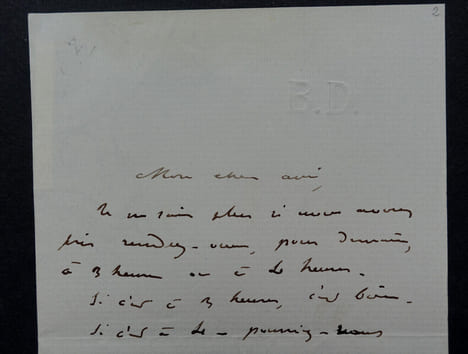 2
B.D.
Mon cher ami,
Je ne sais plus si nous avons
pris rendez-vous, pour demain,
à 3 heures ou à 4 heures.
Si c'est à 3 heures, c'est bien.
Si c'est à 4 - pourriez-vous